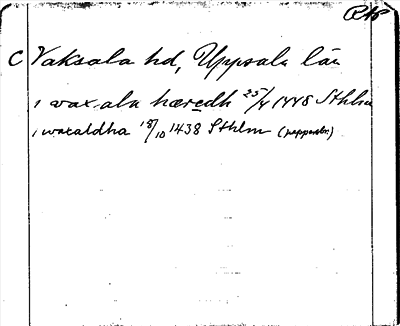 RAp
C Vaksala hd, Uppsala län
i waxala hæredh 25/4 1448 Sthlm
i waxaldha 18/10 1438 Sthlm (pappersbr.)